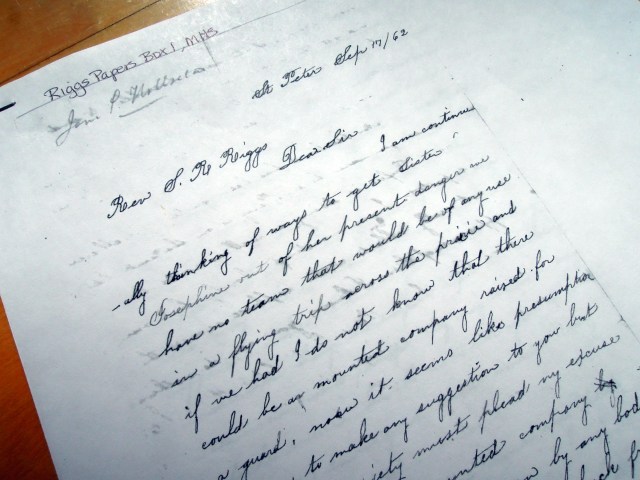 Riggs Papers Box 1, MHS
St Peter Sep 17/62
Rev S. R Riggs
Dear Sir I am continu
-ally thinking of ways to get Sister
Josephine out of her present danger we
have no team that would be of any use
in a flying trip across the prairie and
if we had I do not know that there
could be an mounted company raised for
a guard, now it seems like presumption
to make any suggestion to you but
must plead my excuse
company by
by any bod